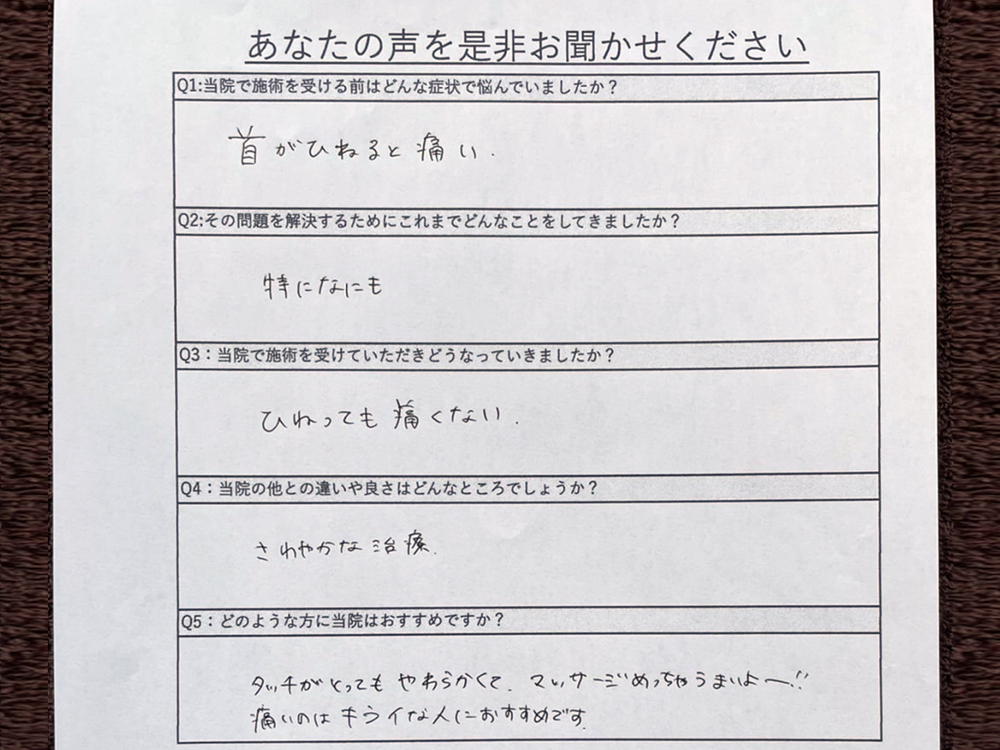 あなたの声を是非お聞かせください
Q1:当院で施術を受ける前はどんな症状で悩んでいましたか？
首がひねると痛い.
Q2:その問題を解決するためにこれまでどんなことをしてきましたか？
特になにも
Q3：当院で施術を受けていただきどうなっていきましたか？
ひねっても痛くない.
Q4：当院の他との違いや良さはどんなところでしょうか？
さわやかな治療.
Q5：どのような方に当院はおすすめですか？
タッチがとってもやわらかくて、マッサージめっちゃうまいよ〜!!
痛いのはキライな人におすすめです